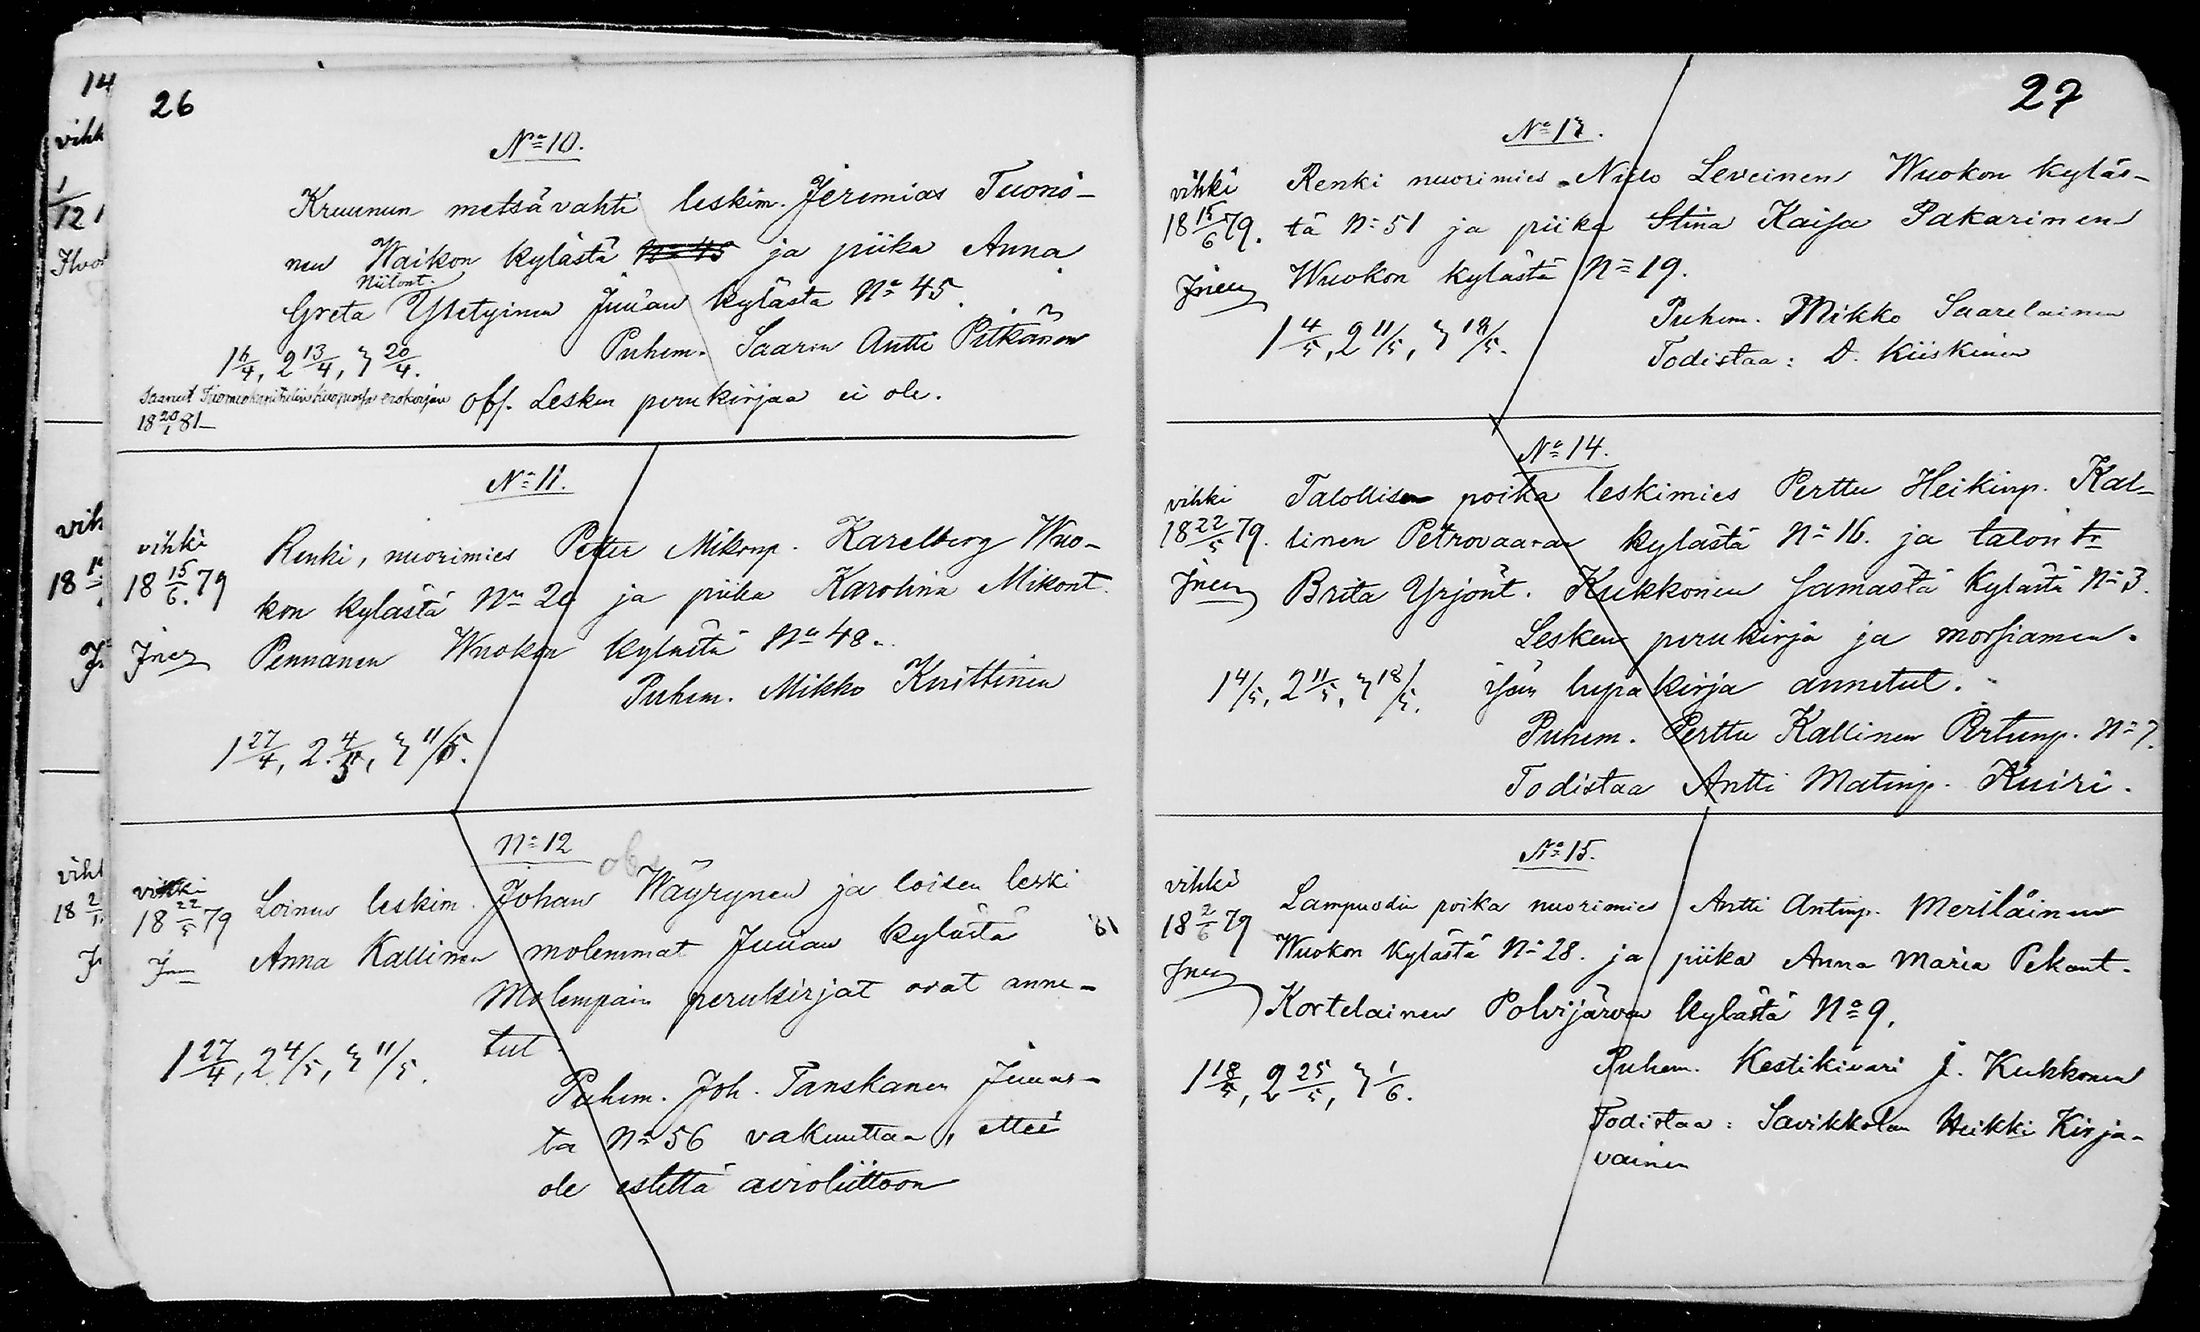 26
No 10.
Kruunun metsävahti leskim. Jeremias Tuono-
nen Waikon kylästä No 45 ja piika Anna
Niilont.
Greta Ystetyinen Juuan kylästä No 45.
Puhem. Saarin Antti Pitkänen
1 6/4, 2 13/4, 3 20/4.
Saanut erokirjan obs. Lesken perukirjaa ei ole.
18 20/1 81
No 11.
vihki
18 15/6 79
Renki, nuorimies Petter Mikonp. Karelberg Wuo-
kon kylästä No 20 ja piika Karolina Mikont.
Pennanen Wuokon kylästä No 48.
Puhem. Mikko Kurittinen
1 27/4, 2 4/5, 3 11/5.
No 12
obs
vihki
18 22/5 79
Loinen leskim. Johan Wäyrynen ja loisen leski
Anna Kallinen molemmat Juuan kylästä
Molempain perukirjat ovat anne-
tut.
1 27/4, 2 4/5, 3 11/5.
Puhem. Joh. Tanskanen Juuas-
ta No 56 vakuuttaa, ettei
ole estettä avioliittoon
27
No 13.
vihki
18 15/6 79.
Renki nuorimies Niilo Leveinen Wuokon kyläs-
tä No 51 ja piika Stina Kaisa Pakarinen
Wuokon kylästä No 19.
Puhem. Mikko Saarelainen
1 4/5, 2 11/5, 3 18/5.
Todistaa: D. Kiiskinen
No 14.
vihki
18 22/5 79.
Talollisen poika leskimies Perttu Heikinp. Kal-
linen Petrovaaran kylästä No 16. ja talon tr
Brita Yrjönt. Kukkonen samasta kylästä No 3.
Lesken perukirja ja morsiamen
isän lupakirja annetut.
1 4/5, 2 11/5, 3 18/5.
Puhem. Perttu Kallinen Pertunp. No 7.
Todistaa Antti Matinp. Kuiri.
No 15.
vihki
18 2/6 79
Lampuodin poika nuorimies Antti Antinp. Meriläinen
Wuokon kylästä No 28. ja piika Anna Maria Pekant.
Kortelainen Polvijärven kylästä No 9.
1 18/5, 2 25/5, 3 1/6.
Puhem. Kestikivari J. Kukkonen
Todistaa: Savikkolan Heikki Kirja-
vainen